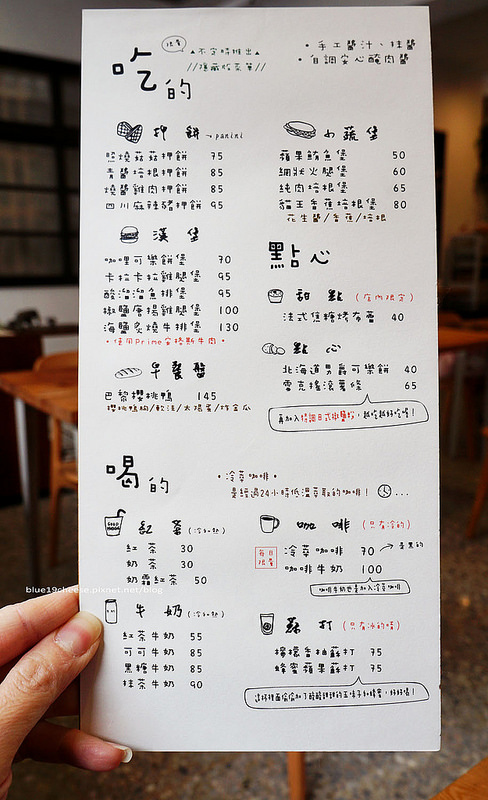 吃的
限量
▲不定時推出▲
//隱藏版菜單//
• 手工醬汁、抹醬
• 自調安心醃肉醬
押餅 → panini
照燒菇菇押餅 75
青醬培根押餅 85
燒醬雞肉押餅 85
四川麻辣豬押餅 95
漢堡
咖哩可樂餅堡 70
卡拉卡拉雞腿堡 95
酸溜溜魚排堡 95
椒鹽唐揚雞腿堡 100
海鹽炙燒牛排堡 130
• 使用Prime安格斯牛肉 •
早餐盤
巴黎櫻桃鴨 145
櫻桃鴨胸/軟法/太陽蛋/炸金瓜
小蔬堡
蘋果鮪魚堡 50
網狀火腿堡 60
純肉培根堡 65
貓王香蕉培根堡 80
花生醬/香蕉/培根
點心
甜點 (店內限定)
法式焦糖烤布蕾 40
點心
北海道男爵可樂餅 40
雪克搖滾薯條 65
再加入特調日式椒鹽粉，越吃越好吃唷！
喝的
• 冷萃咖啡 •
是經過24小時低溫萃取的咖啡！ ...
紅茶 (冷和熱)
紅茶 30
奶茶 30
奶霜紅茶 50
牛奶 (冷和熱)
紅茶牛奶 55
可可牛奶 85
黑糖牛奶 85
抹茶牛奶 90
咖啡 (只有冷的)
每日限量
冷萃咖啡 70 → 是黑的
咖啡牛奶 100
咖啡牛奶也是加入冷萃咖啡
蘇打 (只有冰的唷)
檸檬香柚蘇打 75
蜂蜜蘋果蘇打 75
blue19cheese.pixnet.net/blog